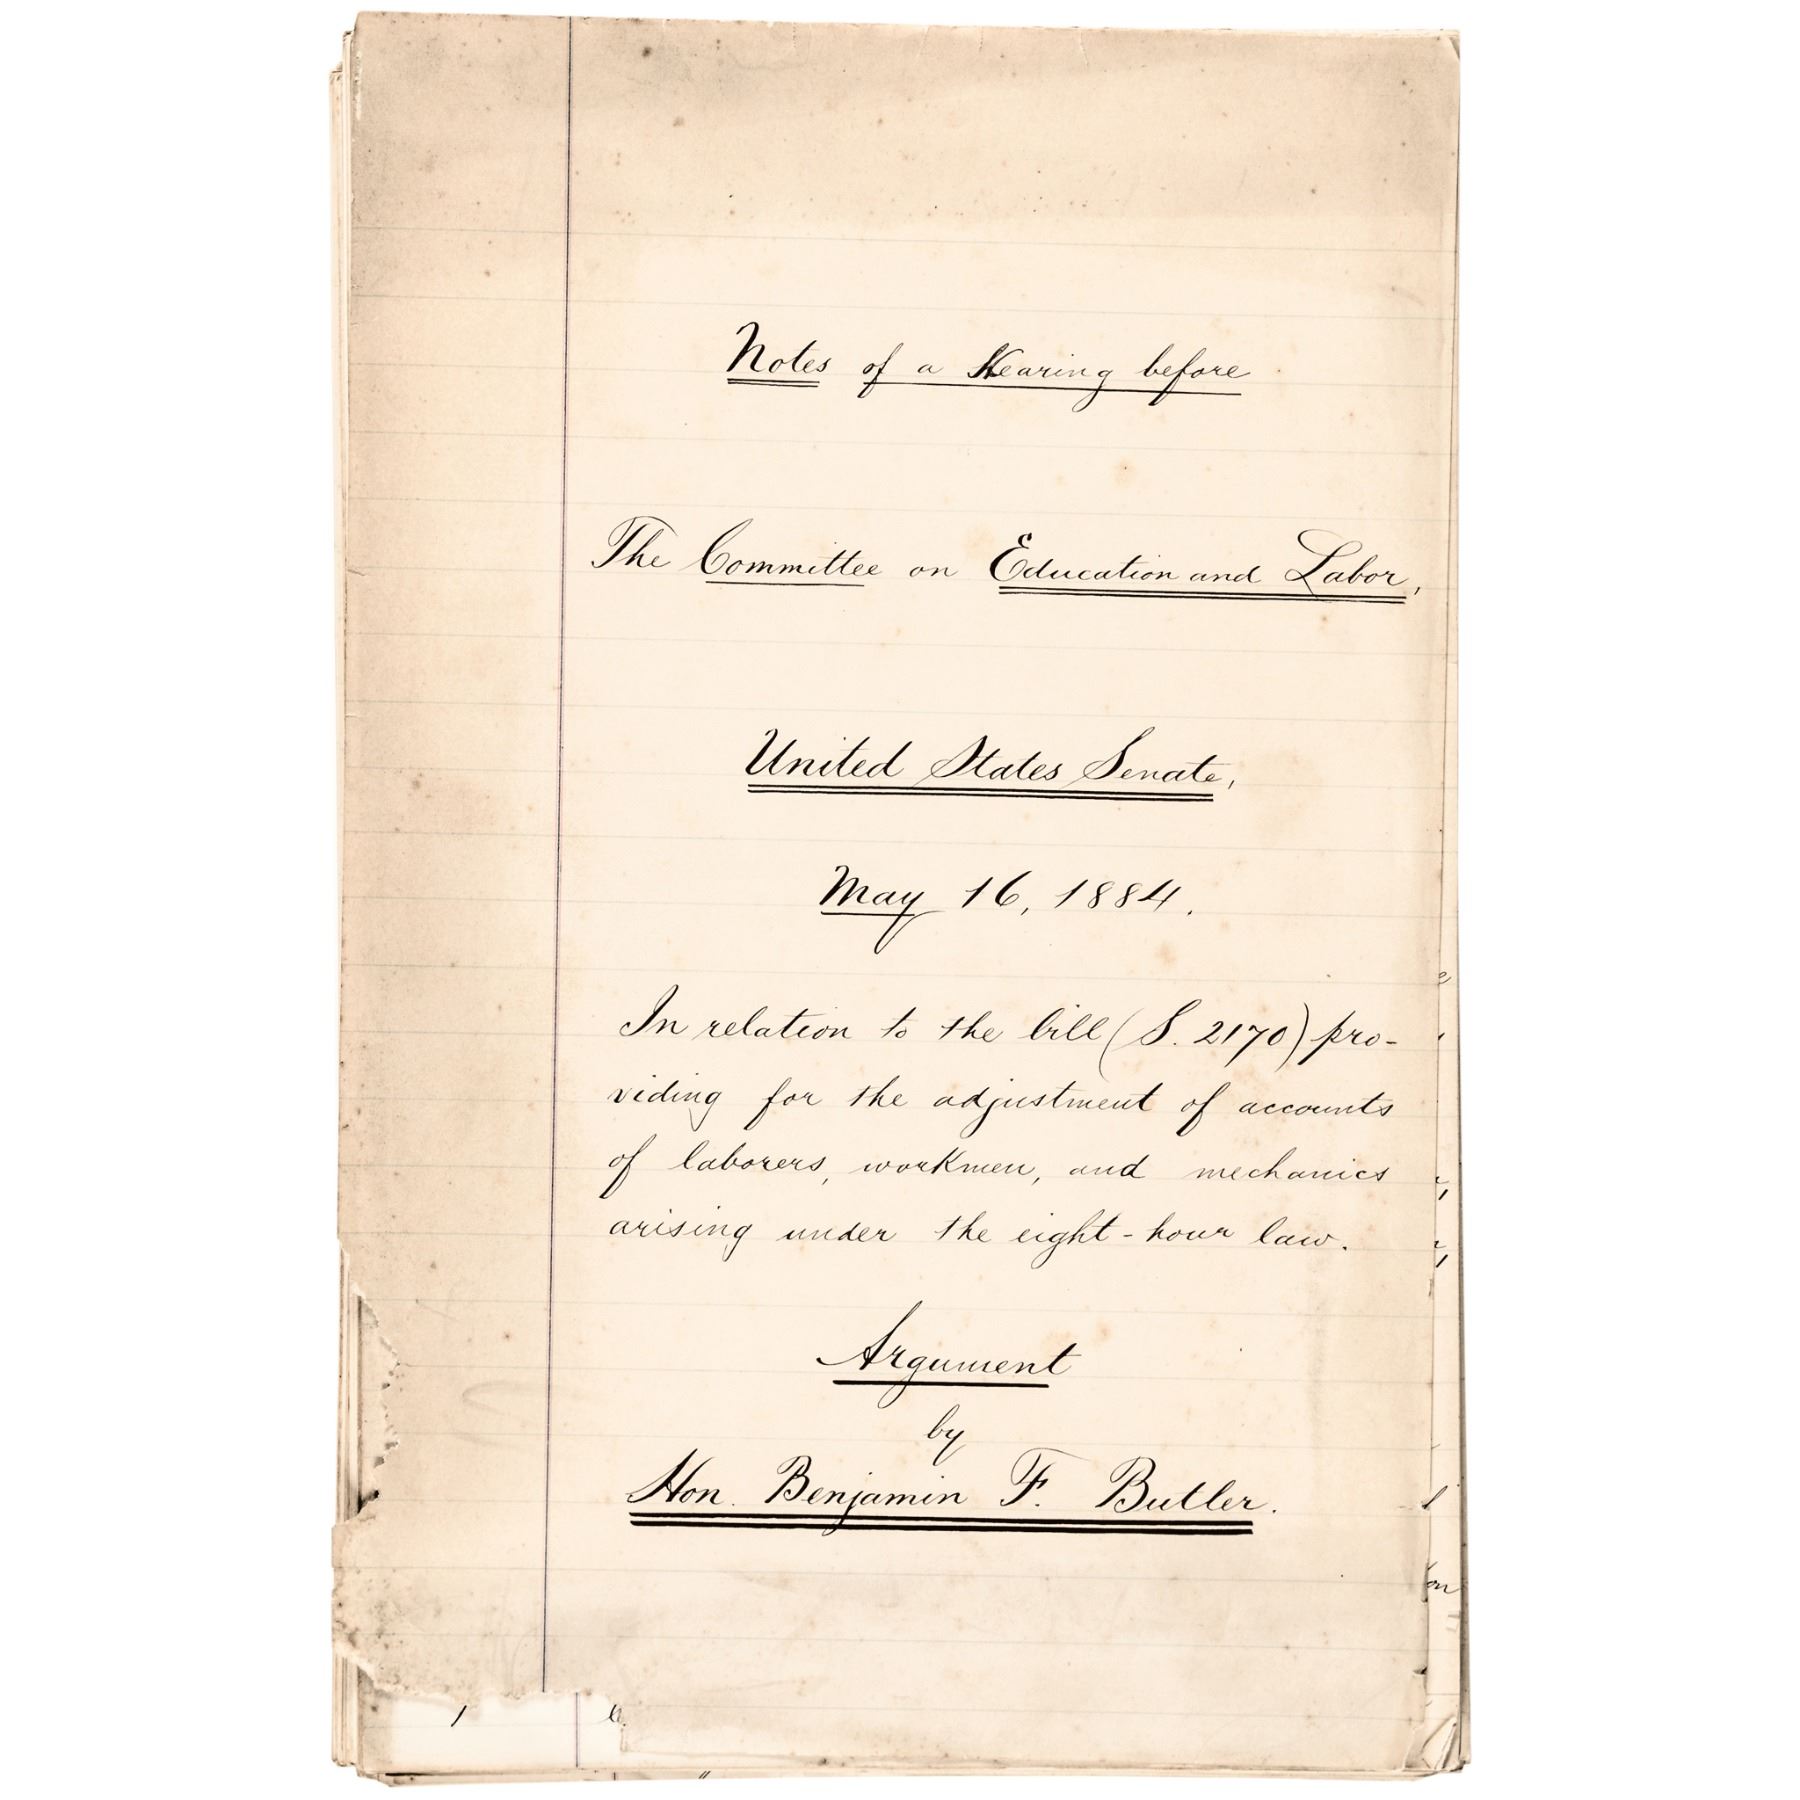 Notes of a Hearing before
The Committee on Education and Labor,
United States Senate,
May 16, 1884.
In relation to the bill (S. 2170) pro-
viding for the adjustment of accounts
of laborers, workmen, and mechanics
arising under the eight-hour law.
Argument
by
Hon. Benjamin F. Butler.
on